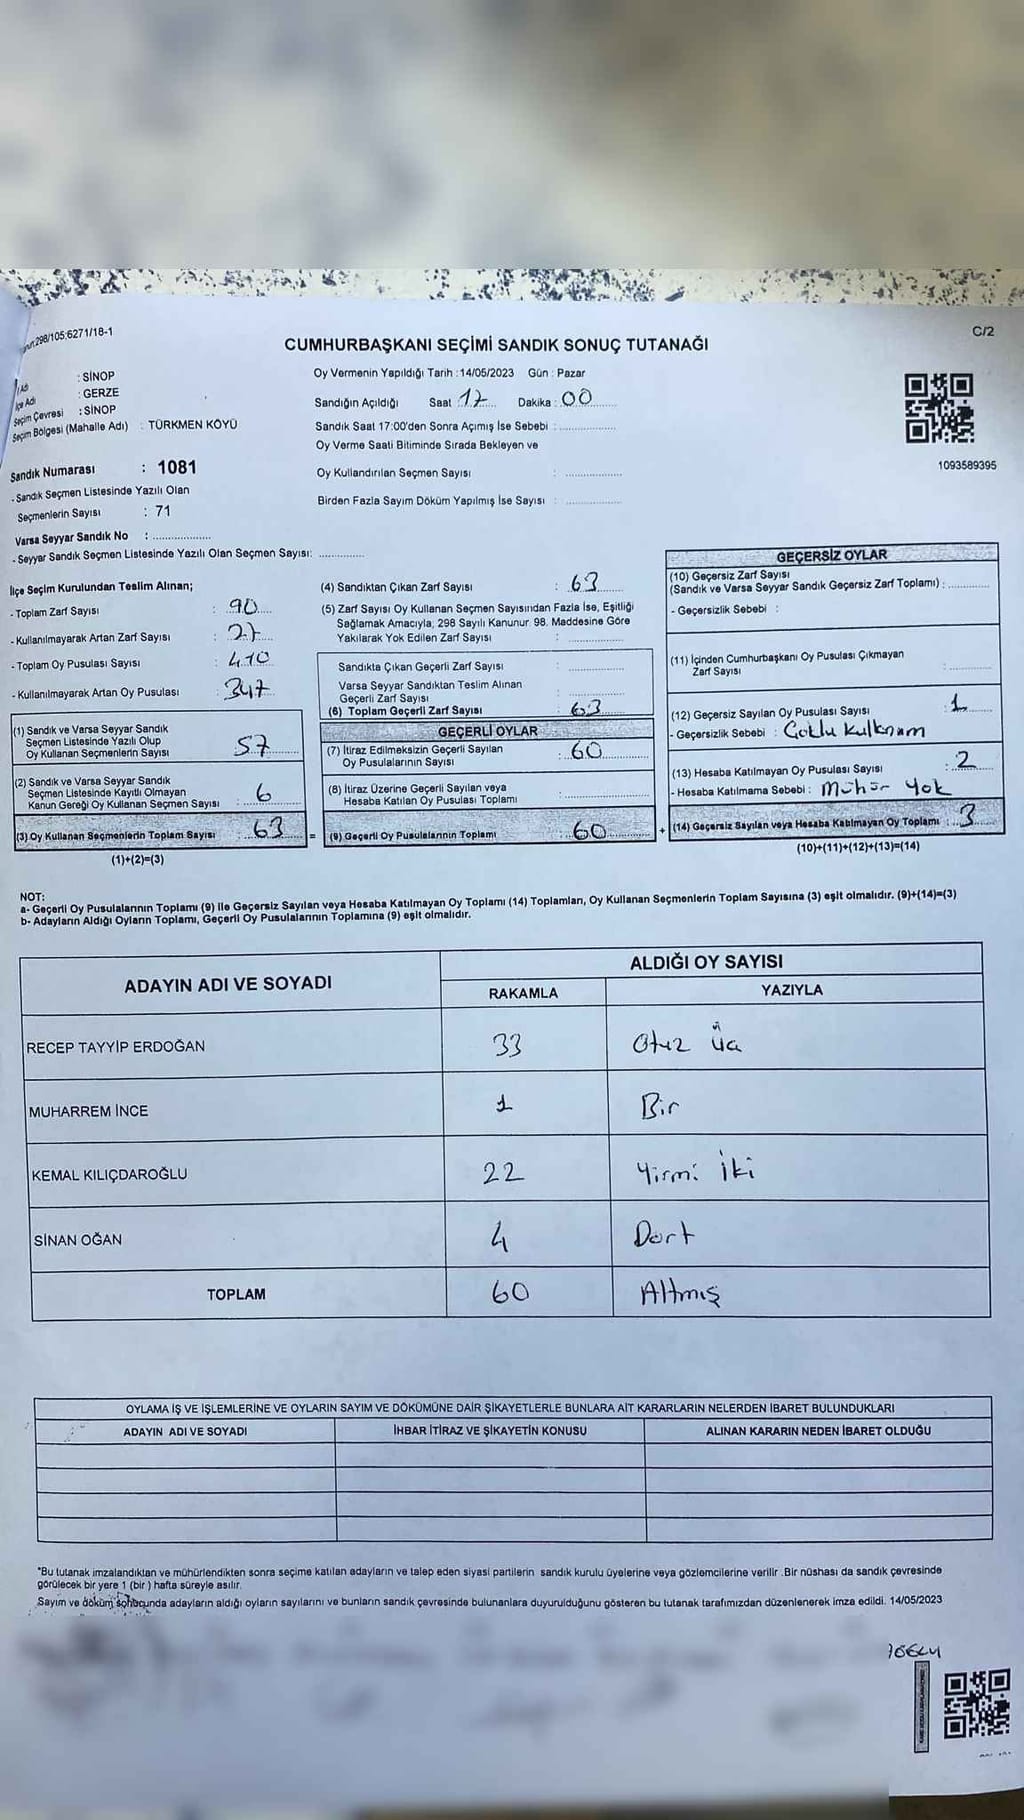 298/105:6271/18-1
C/2
CUMHURBAŞKANI SEÇİMİ SANDIK SONUÇ TUTANAĞI
İl Adı : SİNOP
İlçe Adı : GERZE
Seçim Çevresi : SİNOP
Seçim Bölgesi (Mahalle Adı) : TÜRKMEN KÖYÜ
Sandık Numarası : 1081
- Sandık Seçmen Listesinde Yazılı Olan
Seçmenlerin Sayısı : 71
Varsa Seyyar Sandık No : ....................
- Seyyar Sandık Seçmen Listesinde Yazılı Olan Seçmen Sayısı: ..............
Oy Vermenin Yapıldığı Tarih :14/05/2023 Gün : Pazar
Sandığın Açıldığı Saat : 17 Dakika : 00
Sandık Saat 17:00'den Sonra Açımış İse Sebebi : ..................
Oy Verme Saati Bitiminde Sırada Bekleyen ve
Oy Kullandırılan Seçmen Sayısı : ..................
Birden Fazla Sayım Döküm Yapılmış İse Sayısı : ..................
1093589395
İlçe Seçim Kurulundan Teslim Alınan;
- Toplam Zarf Sayısı : 90
- Kullanılmayarak Artan Zarf Sayısı : 27
- Toplam Oy Pusulası Sayısı : 410
- Kullanılmayarak Artan Oy Pusulası : 347
(1) Sandık ve Varsa Seyyar Sandık
Seçmen Listesinde Yazılı Olup
Oy Kullanan Seçmenlerin Sayısı 57
(2) Sandık ve Varsa Seyyar Sandık
Seçmen Listesinde Kayıtlı Olmayan
Kanun Gereği Oy Kullanan Seçmen Sayısı : 6
(3) Oy Kullanan Seçmenlerin Toplam Sayısı : 63
(1)+(2)=(3)
(4) Sandıktan Çıkan Zarf Sayısı : 63
(5) Zarf Sayısı Oy Kullanan Seçmen Sayısından Fazla İse, Eşitliği
Sağlamak Amacıyla, 298 Sayılı Kanunur. 98. Maddesine Göre
Yakılarak Yok Edilen Zarf Sayısı : ..................
Sandıkta Çıkan Geçerli Zarf Sayısı : ..................
Varsa Seyyar Sandıktan Teslim Alınan
Geçerli Zarf Sayısı : ..................
(6) Toplam Geçerli Zarf Sayısı : 63
GEÇERLİ OYLAR
(7) İtiraz Edilmeksizin Geçerli Sayılan
Oy Pusulalarının Sayısı : 60
(8) İtiraz Üzerine Geçerli Sayılan veya
Hesaba Katılan Oy Pusulası Toplamı : ..................
= (9) Geçerli Oy Pusulalarının Toplamı : 60 +
GEÇERSİZ OYLAR
(10) Geçersiz Zarf Sayısı
(Sandık ve Varsa Seyyar Sandık Geçersiz Zarf Toplamı) : .............
- Geçersizlik Sebebi :
(11) İçinden Cumhurbaşkanı Oy Pusulası Çıkmayan
Zarf Sayısı : .............
(12) Geçersiz Sayılan Oy Pusulası Sayısı : 1
- Geçersizlik Sebebi : Çoklu Kullanım
(13) Hesaba Katılmayan Oy Pusulası Sayısı : 2
- Hesaba Katılmama Sebebi : Mühür Yok
(14) Geçersiz Sayılan veya Hesaba Katılmayan Oy Toplamı : 3
(10)+(11)+(12)+(13)=(14)
NOT:
a- Geçerli Oy Pusulalarının Toplamı (9) ile Geçersiz Sayılan veya Hesaba Katılmayan Oy Toplamı (14) Toplamları, Oy Kullanan Seçmenlerin Toplam Sayısına (3) eşit olmalıdır. (9)+(14)=(3)
b- Adayların Aldığı Oyların Toplamı, Geçerli Oy Pusulalarının Toplamına (9) eşit olmalıdır.
ADAYIN ADI VE SOYADI ALDIĞI OY SAYISI
RAKAMLA YAZIYLA
RECEP TAYYİP ERDOĞAN 33 Otuz üç
MUHARREM İNCE 1 Bir
KEMAL KILIÇDAROĞLU 22 Yirmi İki
SİNAN OĞAN 4 Dört
TOPLAM 60 Altmış
OYLAMA İŞ VE İŞLEMLERİNE VE OYLARIN SAYIM VE DÖKÜMÜNE DAİR ŞİKAYETLERLE BUNLARA AİT KARARLARIN NELERDEN İBARET BULUNDUKLARI
ADAYIN ADI VE SOYADI İHBAR İTİRAZ VE ŞİKAYETİN KONUSU ALINAN KARARIN NEDEN İBARET OLDUĞU
*Bu tutanak imzalandıktan ve mühürlendikten sonra seçime katılan adayların ve talep eden siyasi partilerin sandık kurulu üyelerine veya gözlemcilerine verilir .Bir nüshası da sandık çevresinde
görülecek bir yere 1 (bir ) hafta süreyle asılır.
Sayım ve döküm sonucunda adayların aldığı oyların sayılarını ve bunların sandık çevresinde bulunanlara duyurulduğunu gösteren bu tutanak tarafımızdan düzenlenerek imza edildi. 14/05/2023